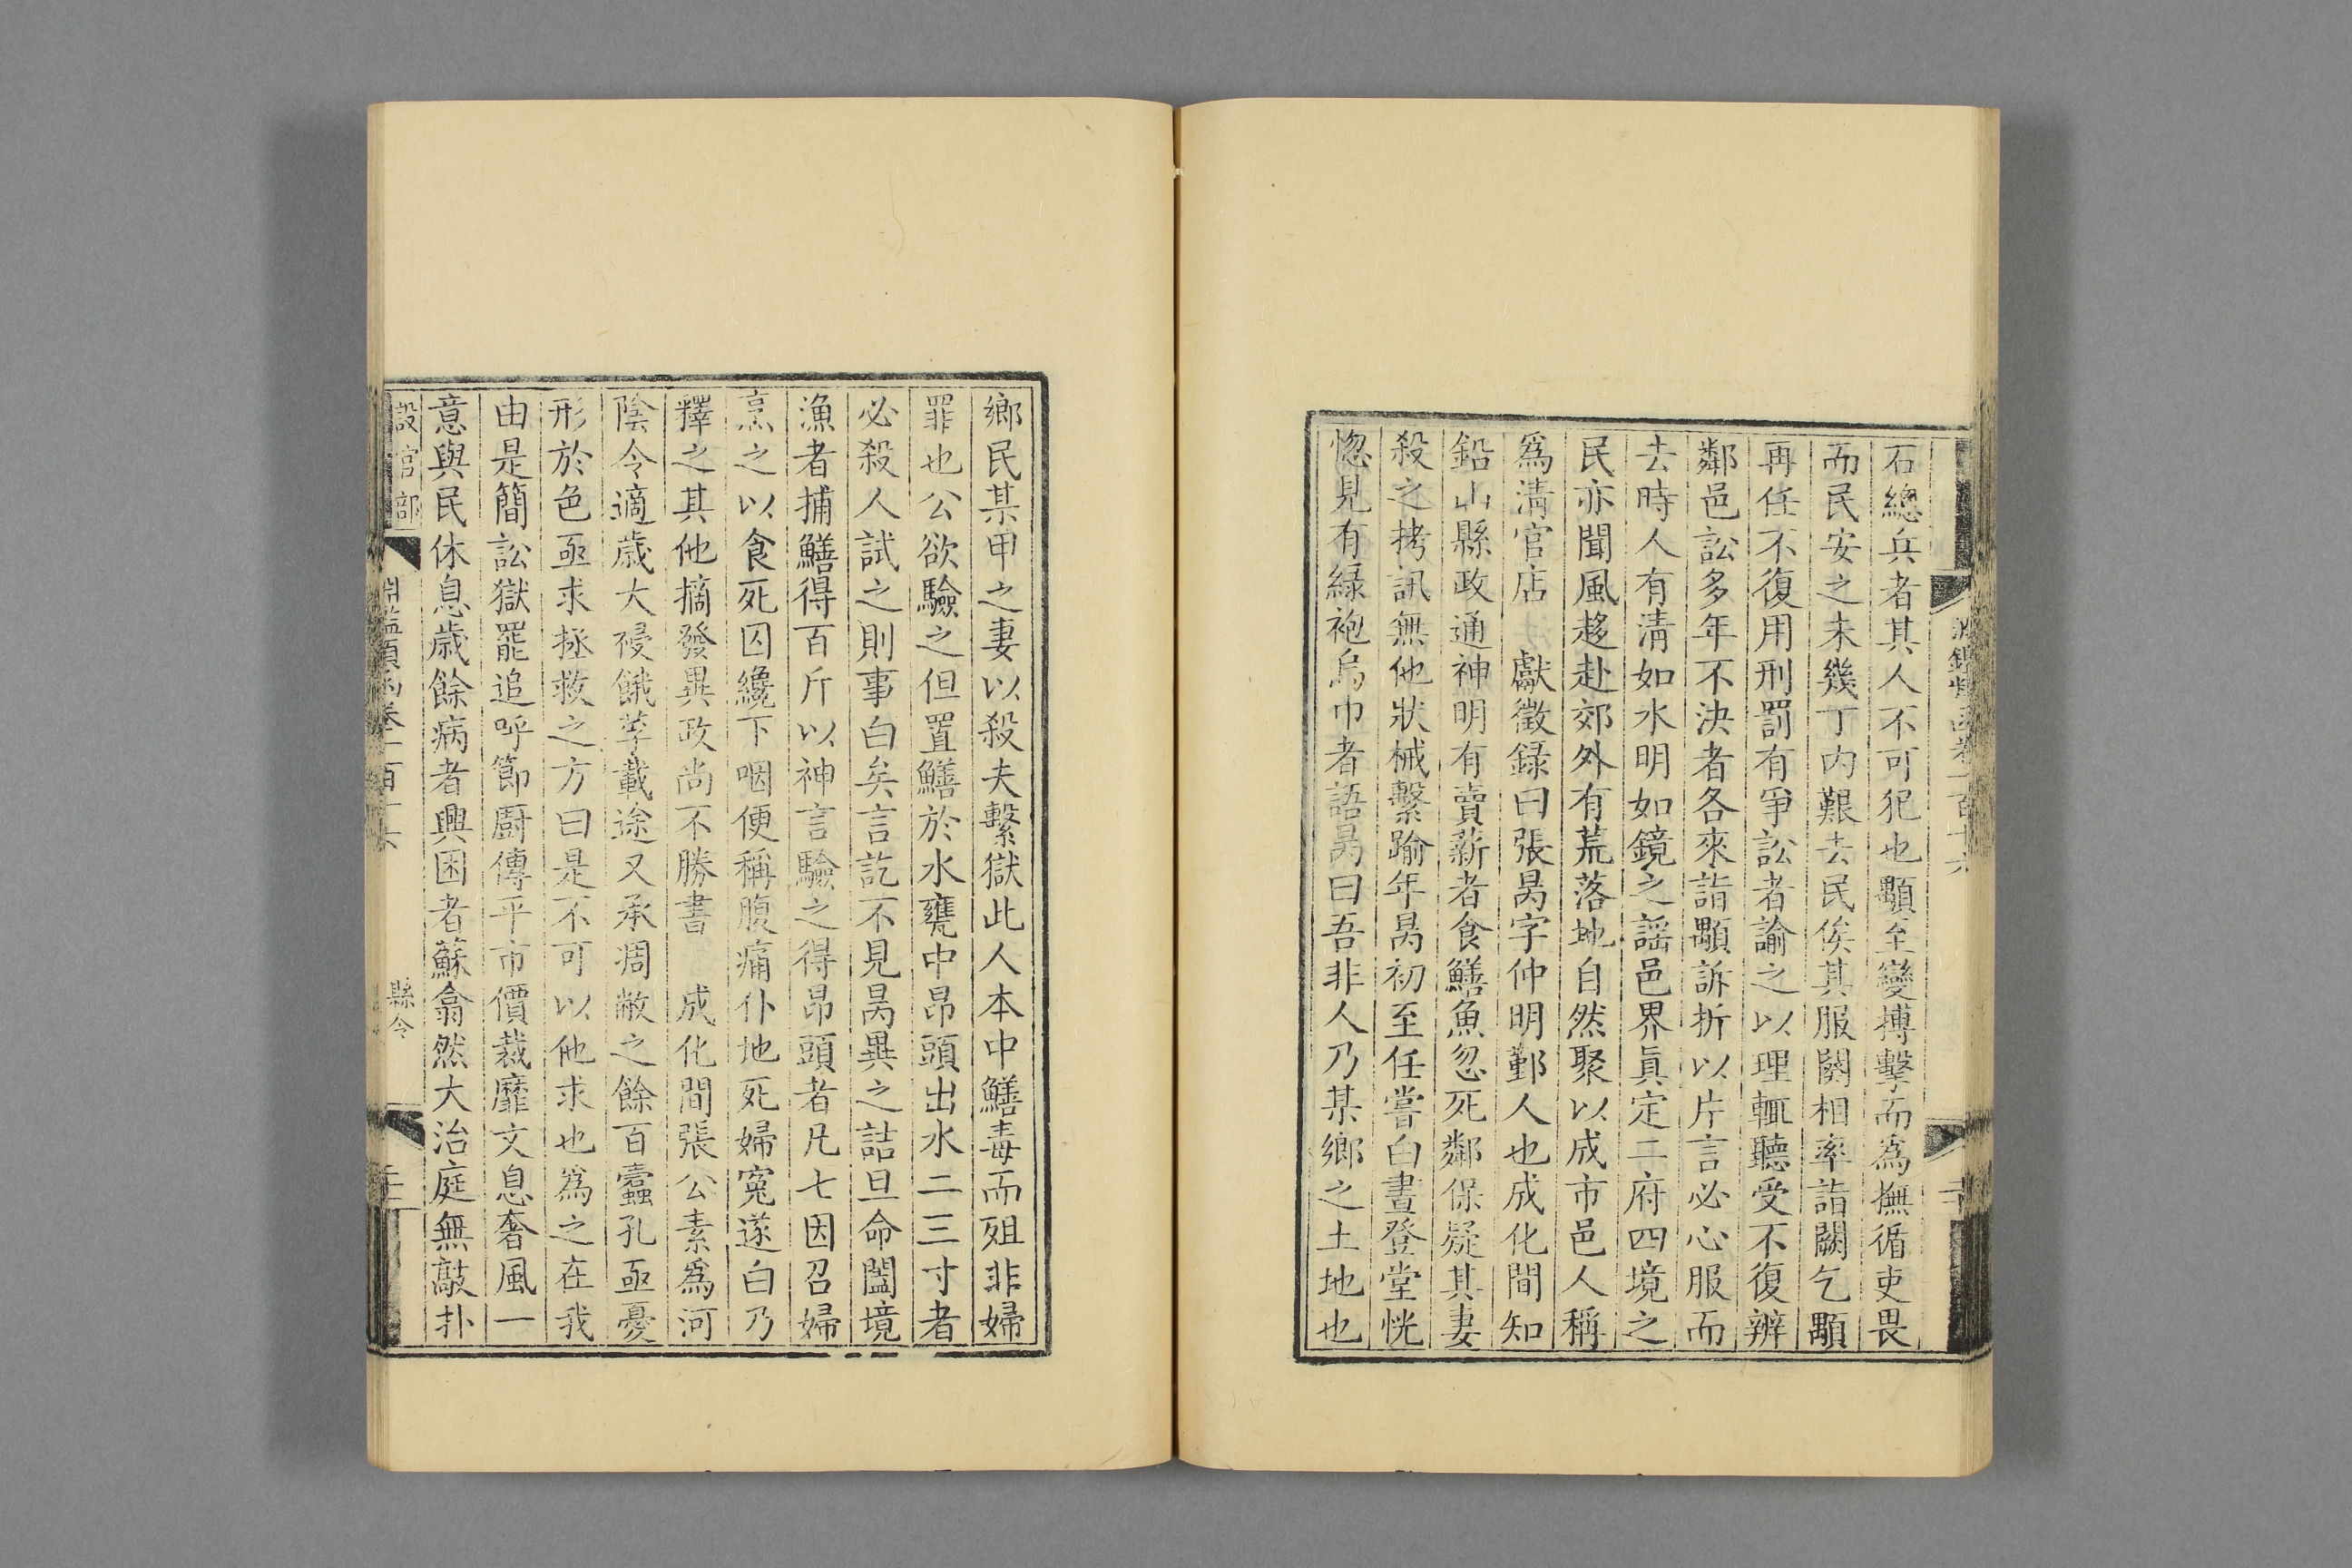 石總兵者其人不可犯也顒至變搏擊而為撫循吏畏
而民安之未幾丁内艱去民俟其服闋相率詣闕乞顒
再任不復用刑罰有爭訟者諭之以理輒聽受不復辨
鄰邑訟多年不決者各來詣顒訴折以片言必心服而
去時人有清如水明如鏡之謡邑界眞定二府四境之
民亦聞風趍赴郊外有荒落地自然聚以成市邑人稱
爲清官店
獻徵録曰張昺字仲明鄞人也成化間知
鉛山縣政通神明有賣薪者食鱔魚忽死鄰保疑其妻
殺之拷訊無他狀械繫踰年昺初至任嘗白晝登堂恍
惚見有緑袍烏巾者語昺曰吾非人乃某鄉之土地也
鄉民某甲之妻以殺夫繫獄此人本中鱔毒而殂非婦
罪也公欲驗之但置鱔於水甕中昂頭出水二三寸者
必殺人試之則事白矣言訖不見昺異之詰旦命闔境
漁者捕鱔得百斤以神言驗之得昂頭者凡七因召婦
烹之以食死囚纔下咽便稱腹痛仆地死婦寃遂白乃
釋之其他摘發異政尚不勝書
成化間張公素爲河
陰令適歳大祲餓莩載途又承凋敝之餘百蠧孔亟憂
形於色亟求拯救之方曰是不可以他求也爲之在我
由是簡訟獄罷追呼節廚傳平市價裁靡文息奢風一
意與民休息歳餘病者興困者蘇翕然大治庭無敲扑
設官部
淵鑑類函卷一百十六
縣令